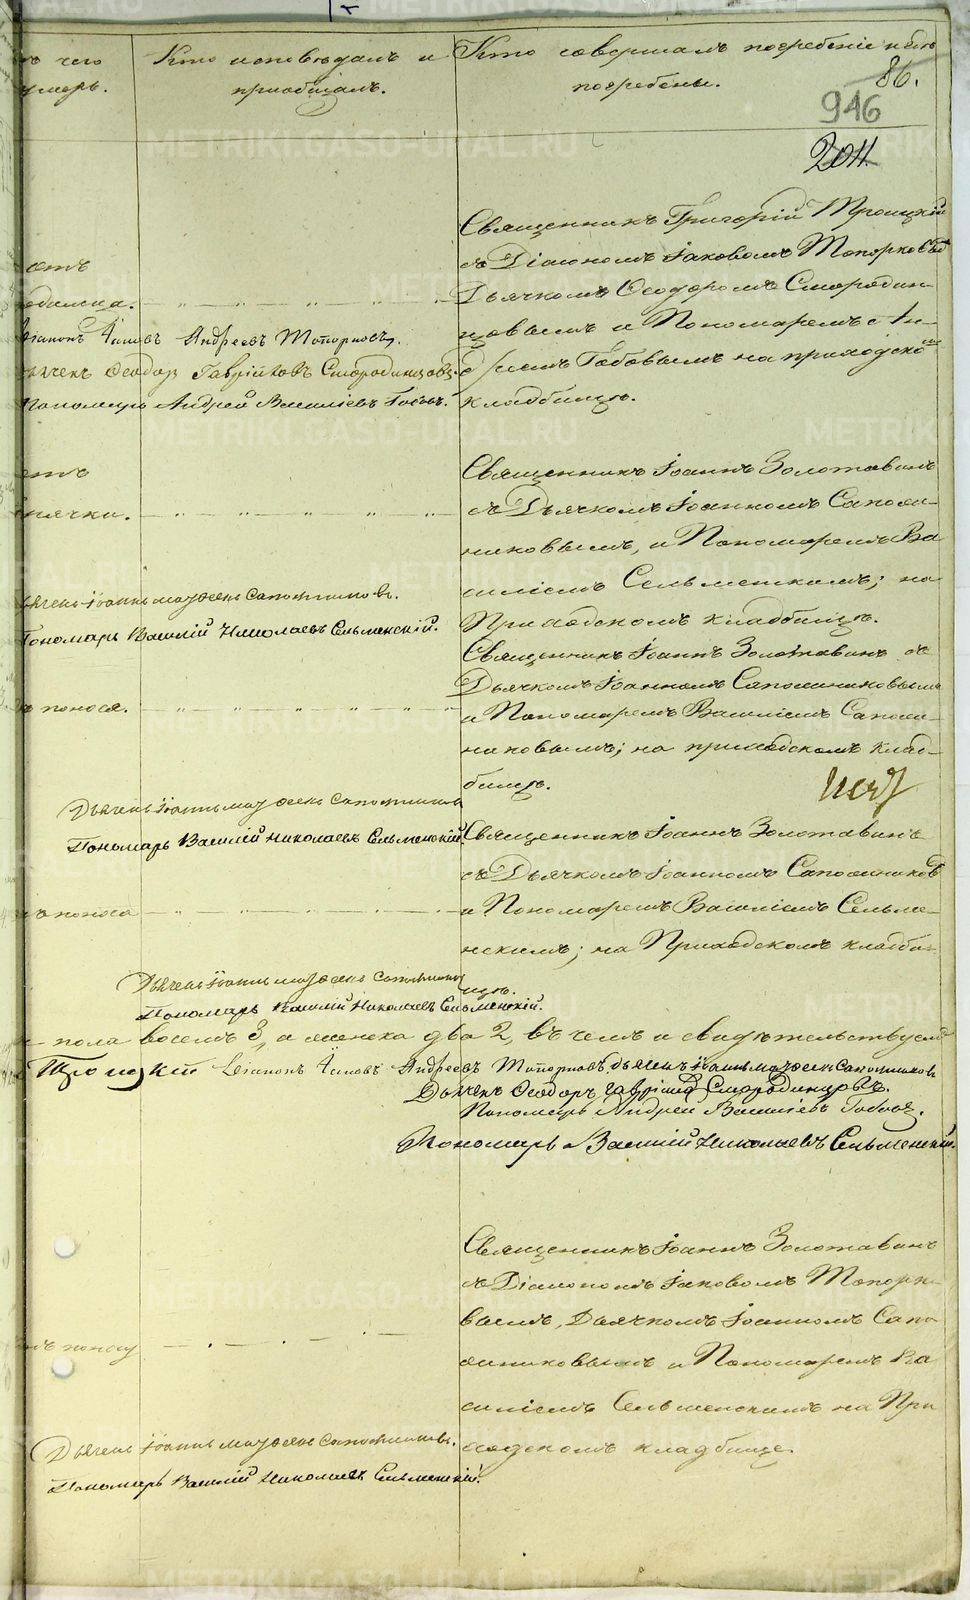 чего
умеръ.
Кто исповѣдалъ и
приобщалъ.
Кто совершалъ погребеніе и гдѣ
погребены.
86.
946
2011
METRIKI.GASO-URAL.RU
Священникъ Григорій Троицкій
съ Діакономъ Іаковомъ Топорковымъ
Дьячкомъ Ѳеодоромъ Смородин-
цовымъ и Пономаремъ Ан-
дреемъ Гобовымъ на приходскомъ
кладбищѣ.
отъ
родимца.
Діаконъ Іаковъ Андреевъ Топорковъ.
Дьячекъ Ѳеодоръ Гавріиловъ Смородинцовъ.
Пономарь Андрей Василіевъ Гобовъ.
METRIKI.GASO-URAL.RU
отъ
горячки.
Священникъ Іоаннъ Золотавинъ
съ Дьячкомъ Іоанномъ Сапож-
никовымъ, и Пономаремъ Ва
силіемъ Сельменскимъ; на
Приходскомъ кладбищѣ.
Дьячекъ Іоаннъ Сапожниковъ.
Пономарь Василій Николаевъ Сельменскій.
поноса.
Священникъ Іоаннъ Золотавинъ съ
Дьячкомъ Іоанномъ Сапожниковымъ
и Пономаремъ Василіемъ Сапож-
никовымъ; на приходскомъ клад-
бищѣ.
Дьячекъ Іоаннъ Сапожниковъ
Пономарь Василій Николаевъ Сельменскій.
поноса
Священникъ Іоаннъ Золотавинъ
съ Дьячкомъ Іоанномъ Сапожниковы
и Пономаремъ Василіемъ Сельме-
нскимъ; на Приходскомъ кладби-
щѣ.
Дьячекъ Іоаннъ Сапожниковъ
Пономарь Василій Николаевъ Сельменскій.
пола восемь 8, а женска два 2, въ чемъ и свидѣтельствуемъ
Троицкій Діаконъ Іаковъ Андреевъ Топорковъ Дьячекъ Іоаннъ Сапожниковъ
Дьячекъ Ѳеодоръ Гавріиловъ Смородинцовъ.
Пономарь Андрей Василіевъ Гобовъ.
Пономарь Василій Николаевъ Сельменскій.
поносу
Священникъ Іоаннъ Золотавинъ
съ Діакономъ Іаковомъ Топорко-
вымъ, Дьячкомъ Іоанномъ Сапо
жниковымъ и Пономаремъ Ва
силіемъ Сельменскимъ на При
ходскомъ кладбище.
Дьячекъ Іоаннъ Сапожниковъ.
Пономарь Василій Николаевъ Сельменскій.
METRIKI.GASO-URAL.RU